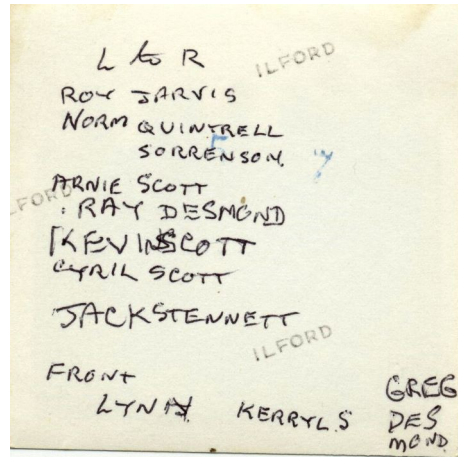 L to R
ILFORD
ROY JARVIS
NORM QUINTRELL
SORRENSON.
ARNIE SCOTT
ILFORD
RAY DESMOND
KEVIN SCOTT
CYRIL SCOTT
JACK STENNETT
ILFORD
FRONT
LYN KERRYL.S
GREG
DES
MOND.